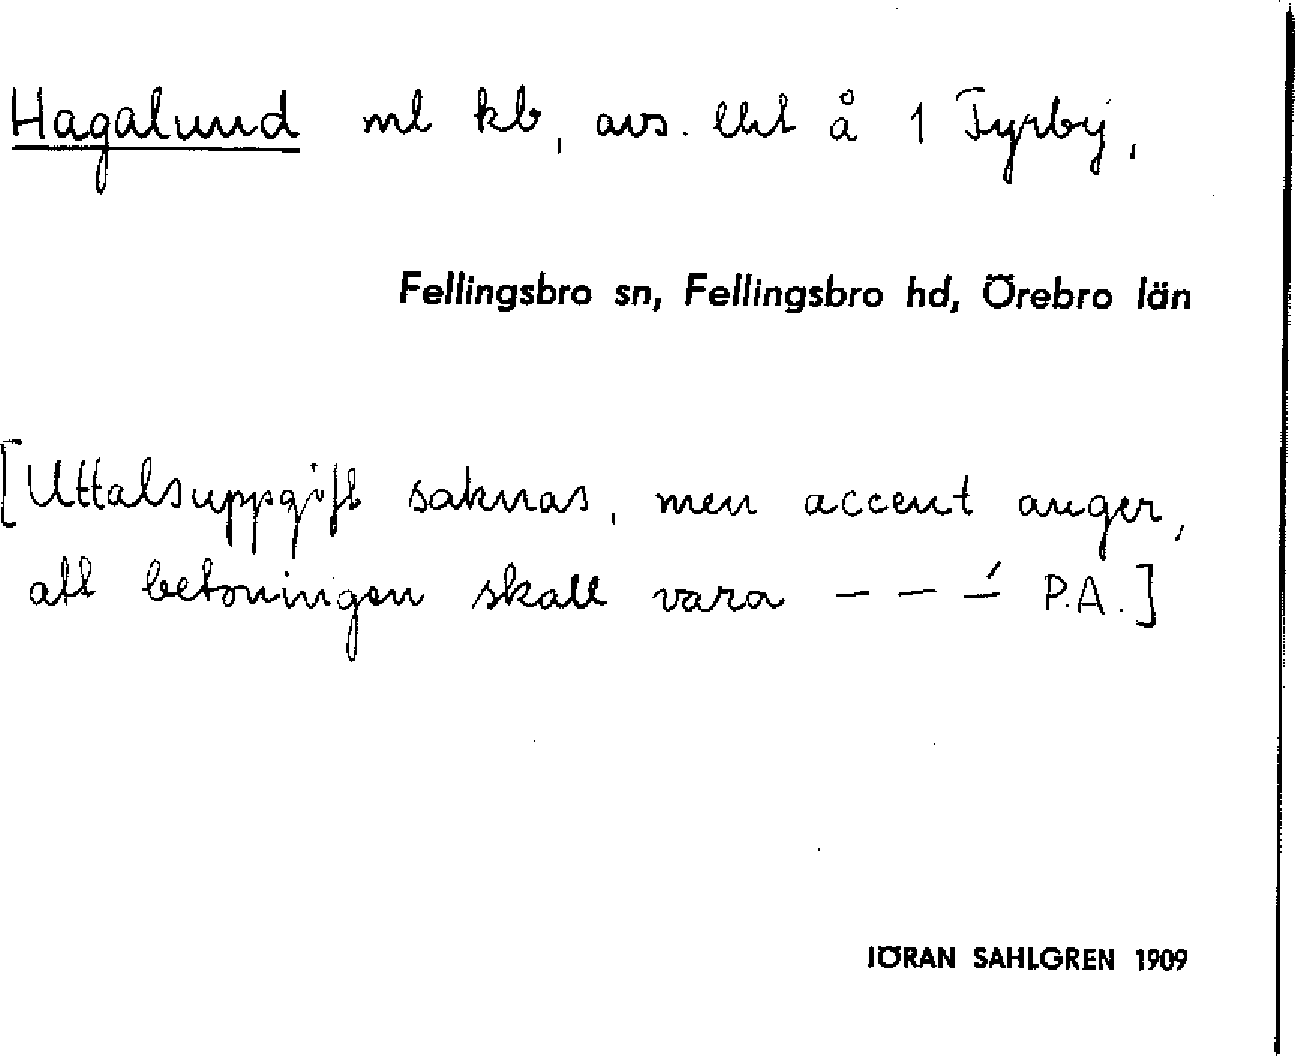 Hagalund ml kb, avs. lht å 1 Fyrby,
Fellingsbro sn, Fellingsbro hd, Örebro län
[Uttalsuppgift saknas, men accent anger,
att betoningen skall vara – – –́ P.A.]
JÖRAN SAHLGREN 1909